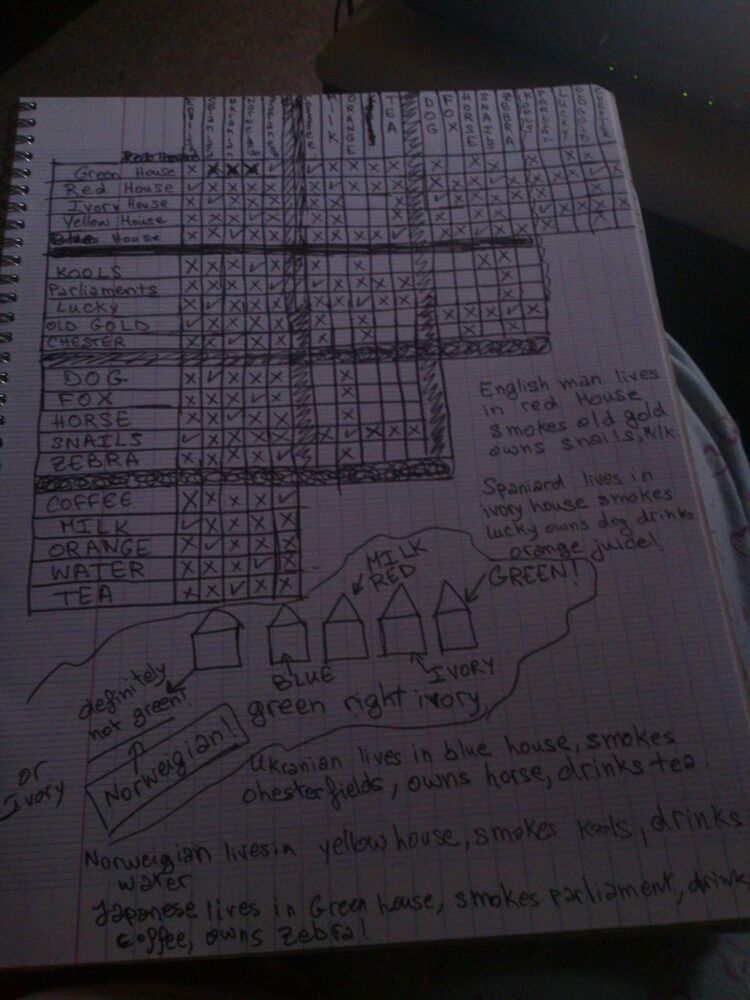 MILK
ORANGE
TEA
DOG
FOX
HORSE
SNAILS
ZEBRA
Green House
Red House
Ivory House
Yellow House
House
KOOLS
Parliaments
Lucky
OLD GOLD
CHESTER
DOG
FOX
HORSE
SNAILS
ZEBRA
COFFEE
MILK
ORANGE
WATER
TEA
English man lives
in red House
smokes old gold
owns snails, Milk
Spaniard lives in
ivory house smokes
lucky owns dog drinks
orange juice!
MILK
RED
GREEN!
BLUE
IVORY
definitely
not green!
green right ivory
or
Ivory
Norweigian!
Ukranian lives in blue house, smokes
chesterfields, owns horse, drinks tea.
Norweigian lives in yellow house, smokes kools, drinks
water
Japanese lives in Green house, smokes parliament, drink
coffee, owns Zebra!